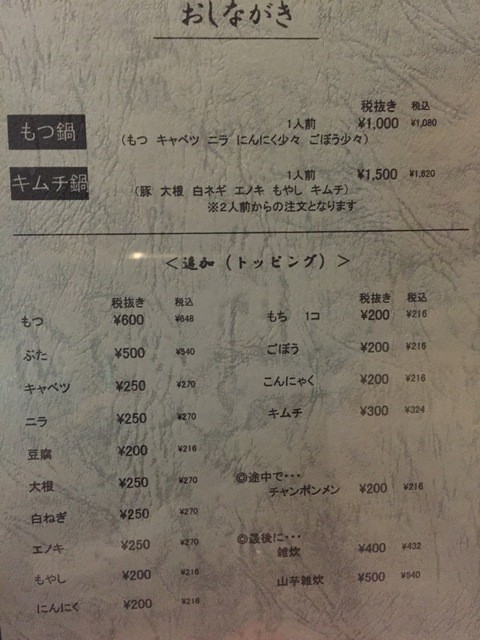 おしながき
税抜き 税込
もつ鍋 1人前 ¥1,000 ¥1,080
（もつ キャベツ ニラ にんにく少々 ごぼう少々）
キムチ鍋 1人前 ¥1,500 ¥1,620
（豚 大根 白ネギ エノキ もやし キムチ）
※2人前からの注文となります
＜追加（トッピング）＞
税抜き 税込
もつ ¥600 ¥648
ぶた ¥500 ¥540
キャベツ ¥250 ¥270
ニラ ¥250 ¥270
豆腐 ¥200 ¥216
大根 ¥250 ¥270
白ねぎ ¥250 ¥270
エノキ ¥250 ¥270
もやし ¥200 ¥216
にんにく ¥200 ¥216
税抜き 税込
もち 1コ ¥200 ¥216
ごぼう ¥200 ¥216
こんにゃく ¥200 ¥216
キムチ ¥300 ¥324
◎途中で・・・
チャンポンメン ¥200 ¥216
◎最後に・・・
雑炊 ¥400 ¥432
山芋雑炊 ¥500 ¥540